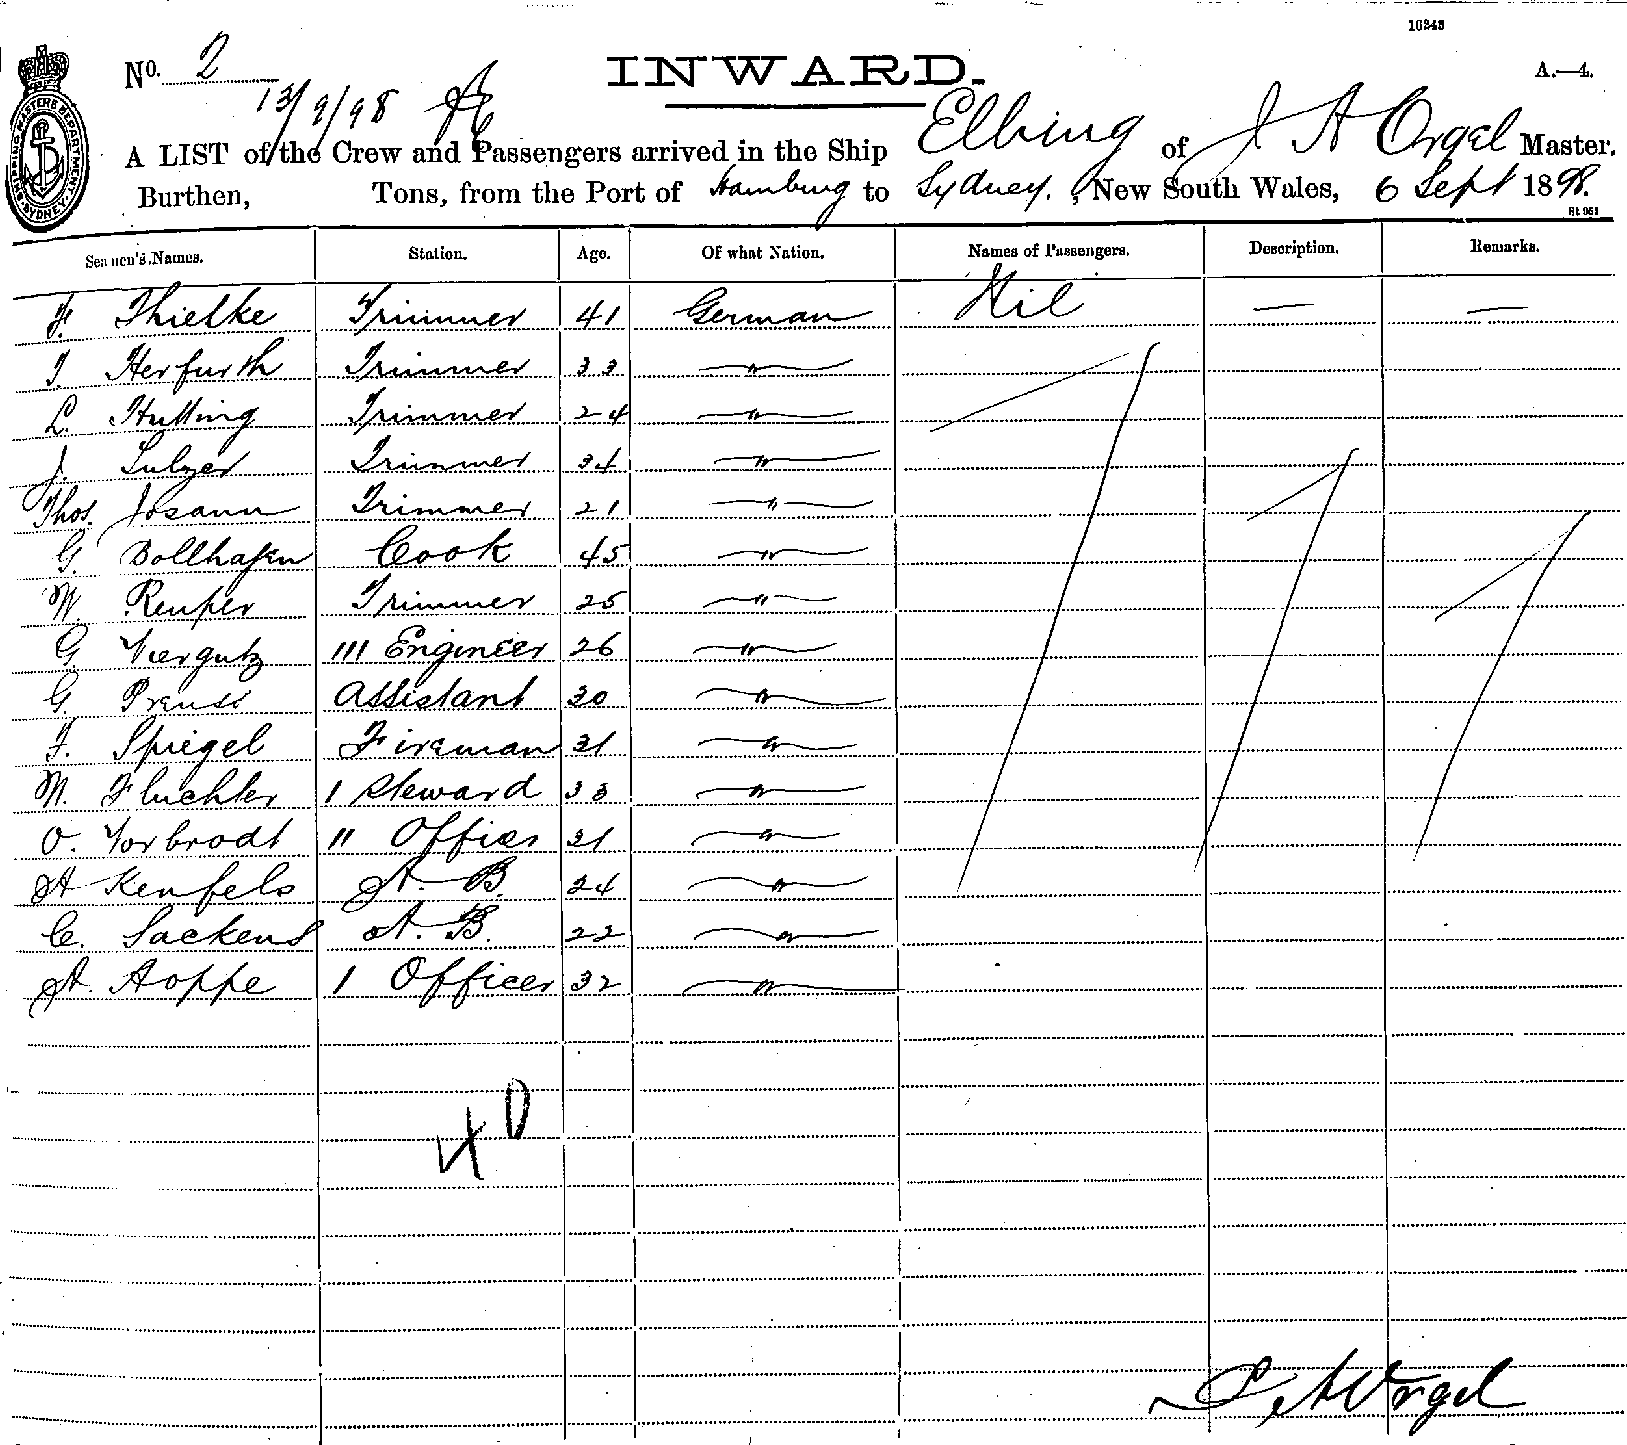 10243
No. 2
INWARD.
A.—4.
13/9/98
A LIST of the Crew and Passengers arrived in the Ship Elbing of J A Orgel Master,
Burthen, Tons, from the Port of Hamburg to Sydney, New South Wales, 6 Sept 1898.
SHIPPING MASTERS DEPARTMENT SYDNEY
Seamen's Names. Station. Age. Of what Nation. Names of Passengers. Description. Remarks.
F. Thielke Trimmer 41 German Nil — —
I. Herfurth Trimmer 33 — " —
L. Hutting Trimmer 24 — " —
J. Sulzer Trimmer 34 — " —
Thos. Josann Trimmer 21 — " —
G. Bollhafen Cook 45 — " —
W. Reuper Trimmer 25 — " —
G. Viergutz III Engineer 26 — " —
G. Preuss Assistant 30 — " —
F. Spiegel Fireman 31 — " —
W. Fluchter I Steward 33 — " —
O. Vorbrodt II Officer 31 — " —
A Kenfels A. B. 24 — " —
C. Sackens A. B. 22 — " —
A. Hoppe I Officer 32 — " —
40
J A Orgel